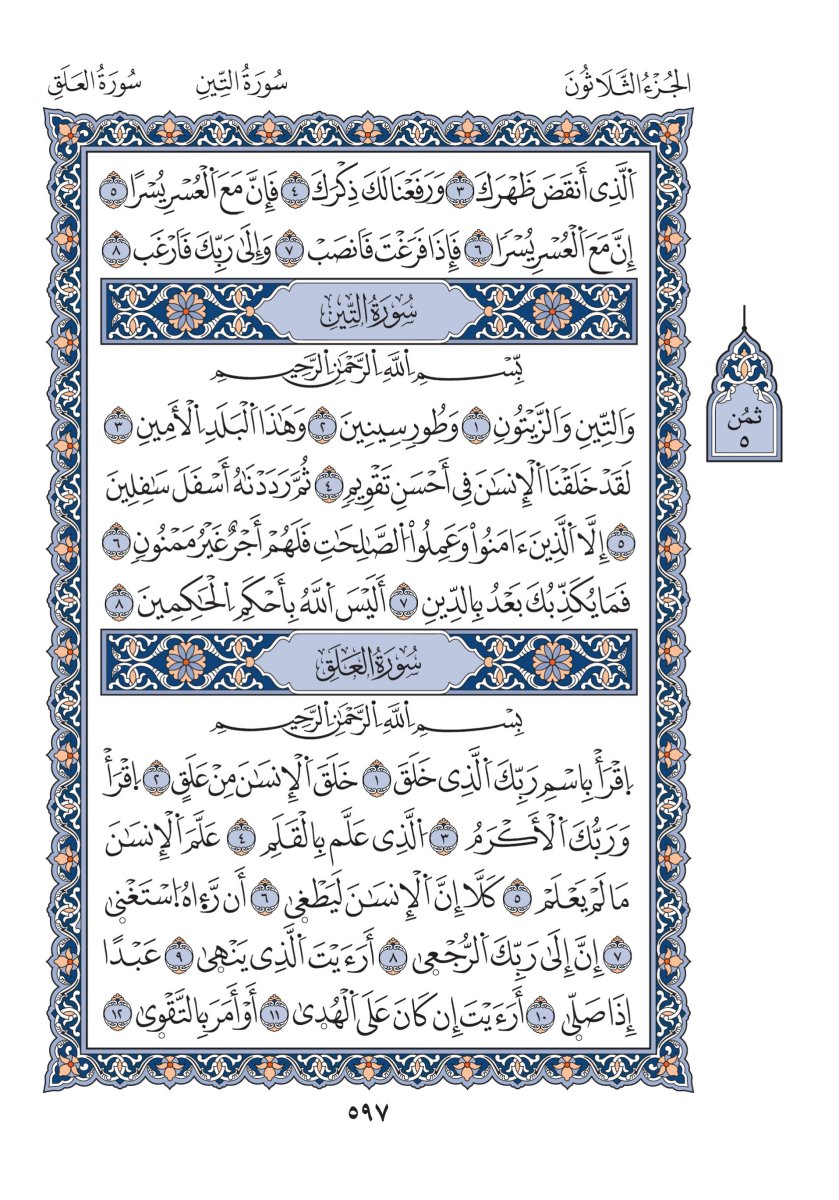 الجُزْءُ الثَّلَاثُونَ سُورَةُ التِّينِ سُورَةُ العَلَقِ
اَ۬لَّذِي أَنقَضَ ظَهْرَكَ ٣ وَرَفَعْنَا لَكَ ذِكْرَكَ ٤ فَإِنَّ مَعَ اَ۬لْعُسْرِ يُسْرًا ٥
إِنَّ مَعَ اَ۬لْعُسْرِ يُسْرًا ٦ فَإِذَا فَرَغْتَ فَانصَبْ ٧ وَإِلَىٰ رَبِّكَ فَارْغَب ٨
سُورَةُ التِّينِ
بِّسْمِ اِ۬للَّهِ اِ۬لرَّحْمَٰنِ اِ۬لرَّحِيمِ
وَالتِّينِ وَالزَّيْتُونِ ١ وَطُورِ سِينِينَ ٢ وَهَٰذَا اَ۬لْبَلَدِ اِ۬لْأَمِينِ ٣
لَقَدْ خَلَقْنَا اَ۬لْإِنسَٰنَ فِي أَحْسَنِ تَقْوِيمٍ ٤ ثُمَّ رَدَدْنَٰهُ أَسْفَلَ سَٰفِلِينَ
٥ إِلَّا اَ۬لَّذِينَ ءَامَنُواْ وَعَمِلُواْ اُ۬لصَّٰلِحَٰتِ فَلَهُمْ أَجْرٌ غَيْرُ مَمْنُونٍ ٦
فَمَا يُكَذِّبُكَ بَعْدُ بِالدِّينِ ٧ أَلَيْسَ اَ۬للَّهُ بِأَحْكَمِ اِ۬لْحَٰكِمِينَ ٨
ثُمُن
٥
سُورَةُ العَلَقِ
بِسْمِ اِ۬للَّهِ اِ۬لرَّحْمَٰنِ اِ۬لرَّحِيمِ
اِ۪قْرَأْ بِاسْمِ رَبِّكَ اَ۬لَّذِي خَلَقَ ١ خَلَقَ اَ۬لْإِنسَٰنَ مِنْ عَلَقٍ ٢ اِ۪قْرَأْ
وَرَبُّكَ اَ۬لْأَكْرَمُ ٣ اَ۬لَّذِي عَلَّم بِالْقَلَمِ ٤ عَلَّمَ اَ۬لْإِنسَٰنَ
مَا لَمْ يَعْلَم ٥ كَلَّا إِنَّ اَ۬لْإِنسَٰنَ لَيَطْغ۪ىٰ ٦ أَن رَّء۪اهُ اُ۪سْتَغْن۪ىٰ
٧ إِنَّ إِلَىٰ رَبِّكَ اَ۬لرُّجْع۪ىٰ ٨ أَرَءَيْتَ اَ۬لَّذِي يَنْه۪ىٰ ٩ عَبْدًا
إِذَا صَلّ۪ىٰ ١٠ أَرَءَيْتَ إِن كَانَ عَلَى اَ۬لْهُد۪ىٰ ١١ أَوْ أَمَرَ بِالتَّقْو۪ىٰ ١٢
٥٩٧